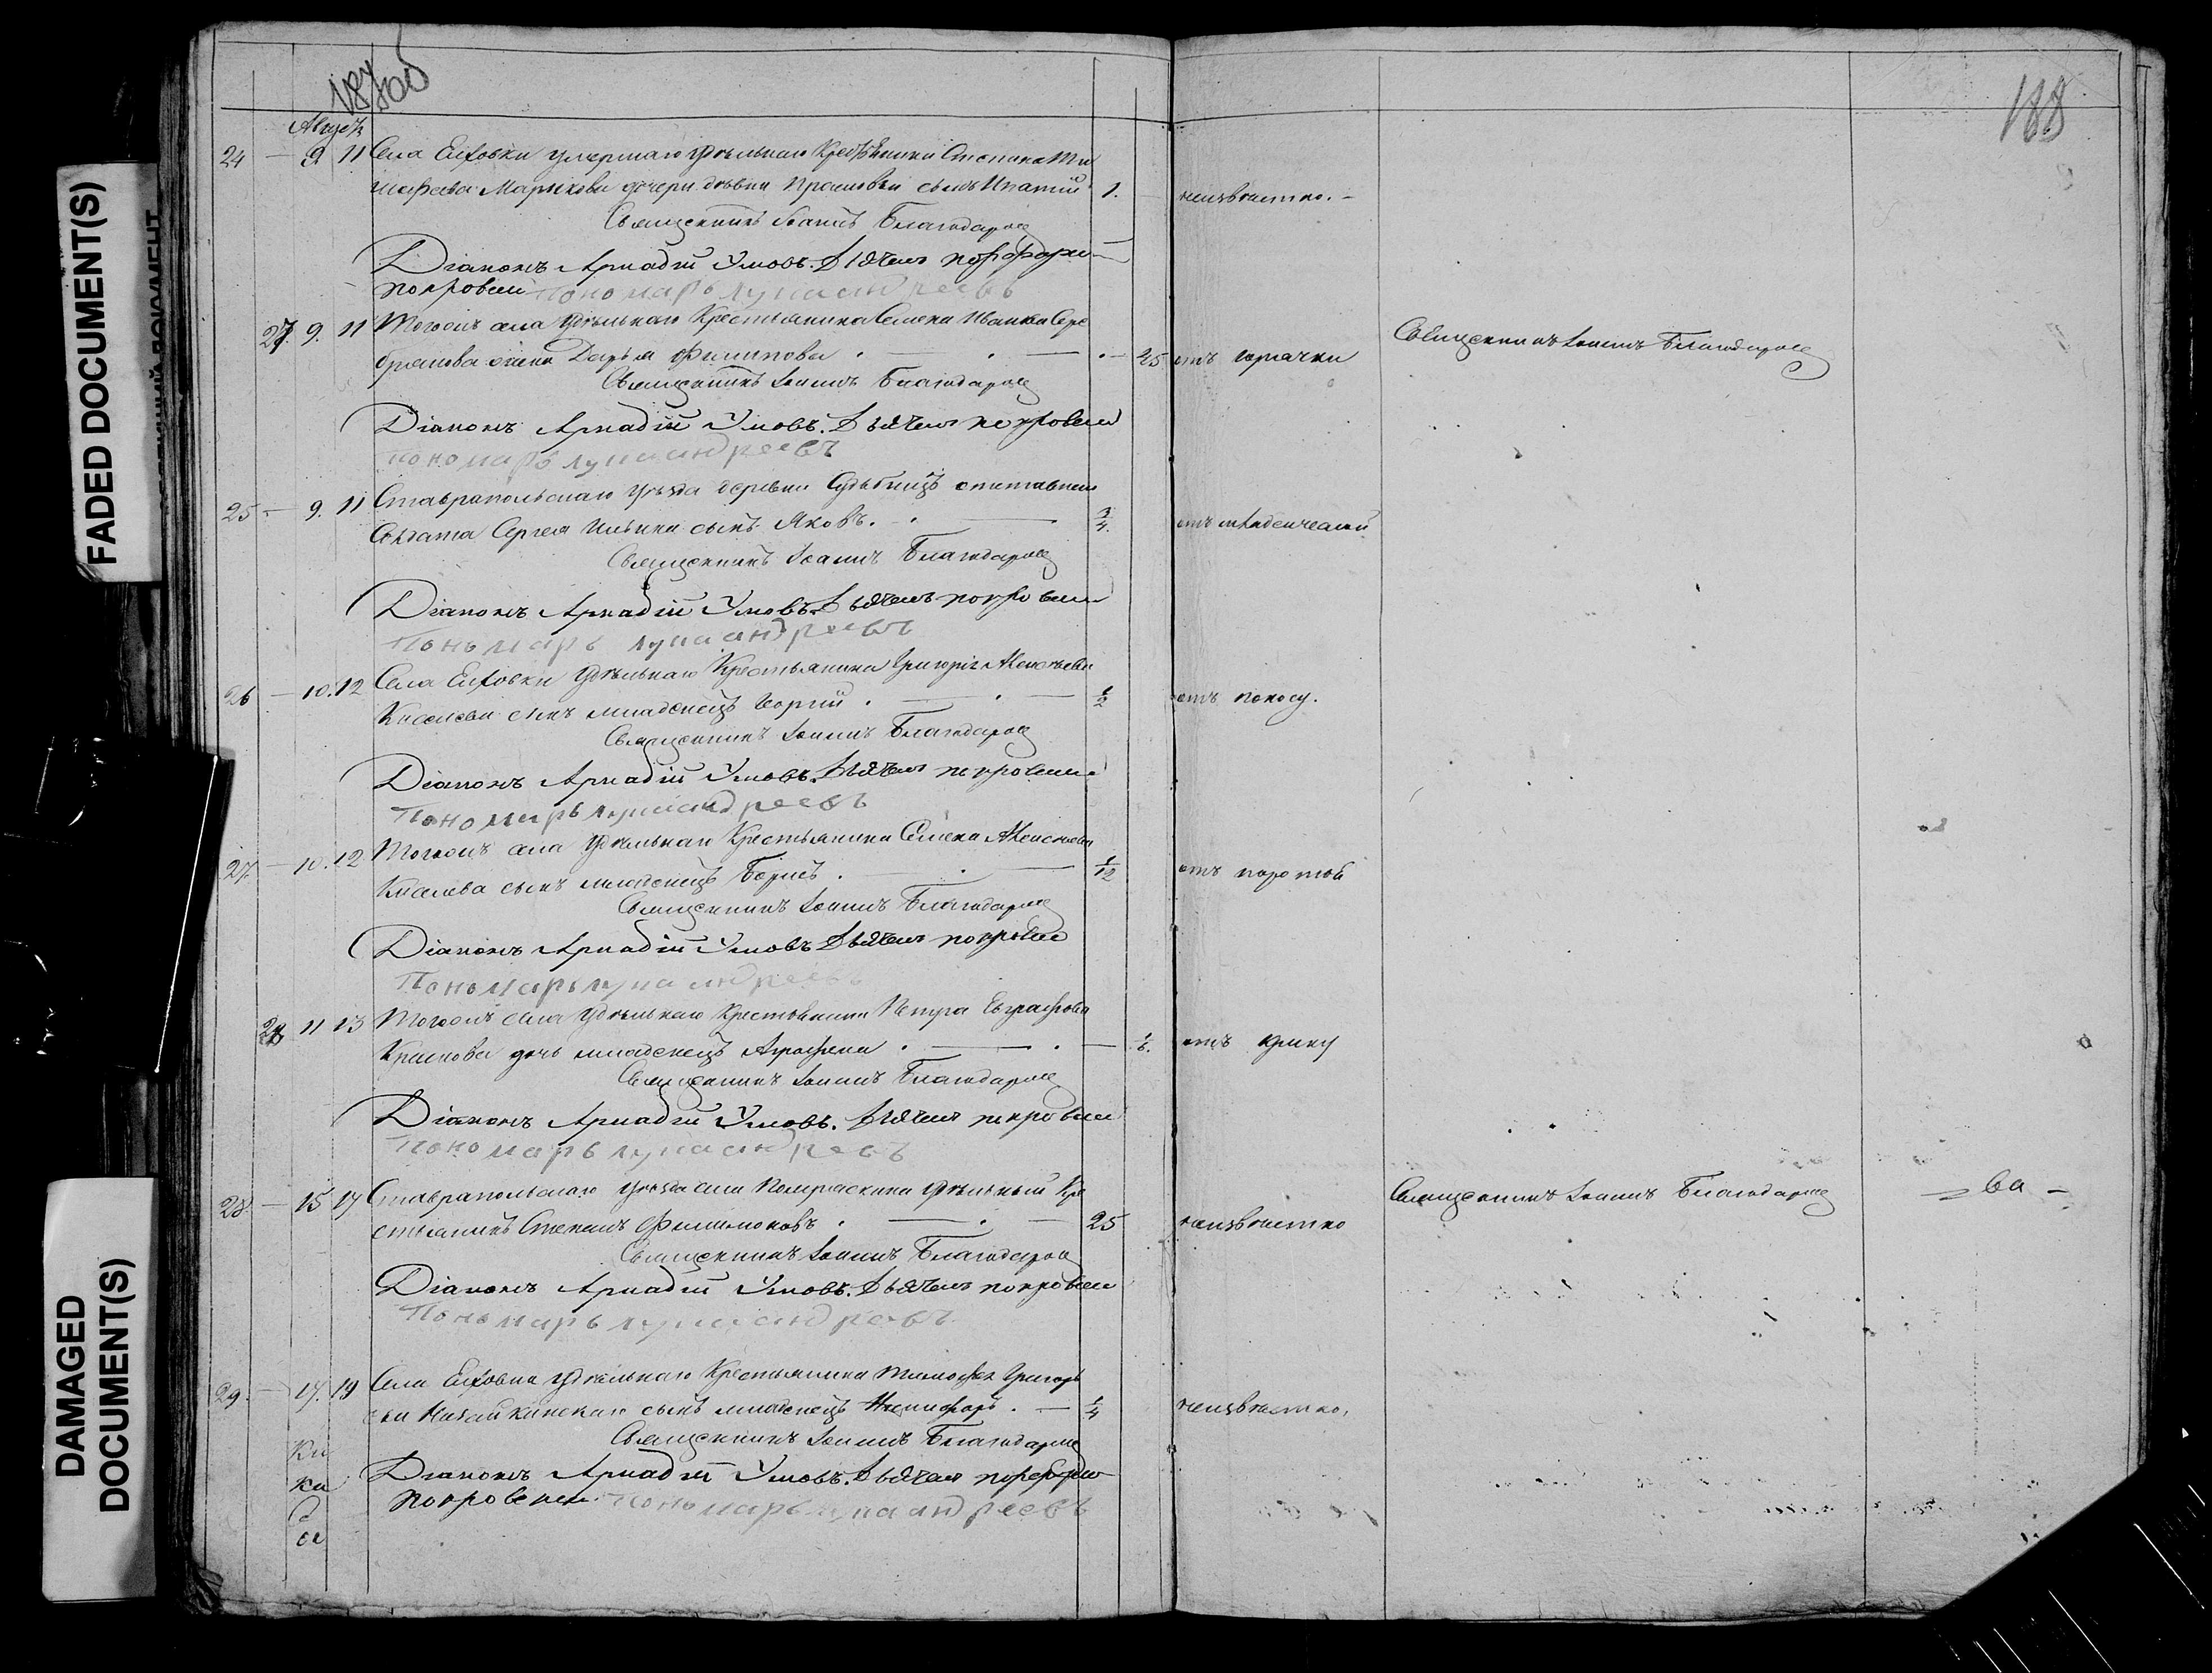 FADED DOCUMENT(S)
DAMAGED
DOCUMENT(S)
187об
188
Августъ
24 — 9 11 Села Елховки умершаго удѣльнаго Крестьянина Степана
дочери дѣвки сынъ Ипатій 1. неизвѣстно.
Священникъ Іоаннъ Благодаров
Діаконъ Аркадій Умовъ. Дьячекъ
покровский Пономарь лука андреевъ
27. 9. 11 Тогожъ села Удѣльнаго Крестьянина Семена Иванова Сере
брякова жена Дарья Филипова 25 отъ горячки Священникъ Іоаннъ Благодаров
Священникъ Іоаннъ Благодаров
Діаконъ Аркадій Умовъ. Дьячекъ покровский
пономарь лука андреевъ
25 — 9. 11 Ставропольскаго уѣзда деревни отставнаго
Солдата Сергея Ильина сынъ Яковъ. 3/4. отъ младенческой
Священникъ Іоаннъ Благодаров
Діаконъ Аркадій Умовъ. Дьячекъ покровский
Пономарь лука андреевъ
26 — 10. 12 Села Елховки Удѣльнаго Крестьянина Григорія Алексѣева
Киселева сынъ младенецъ Георгій. 1/2 отъ поносу.
Священникъ Іоаннъ Благодаров
Діаконъ Аркадій Умовъ. Дьячекъ покровский
Пономарь лука андреевъ
27. — 10. 12 Тогожъ села Удѣльнаго Крестьянина Семена Алексѣева
Киселева сынъ младенецъ Борисъ. 1/12 отъ
Священникъ Іоаннъ Благодаров
Діаконъ Аркадій Умовъ Дьячекъ покровский
Пономарь лука андреевъ
28 11 13 Тогожъ села Удѣльнаго Крестьянина Петра Евграфова
Краснова дочь младенецъ Агрофена 1/6. отъ крику
Священникъ Іоаннъ Благодаров
Діаконъ Аркадій Умовъ. Дьячекъ покровский
Пономарь лука андреевъ
28. — 15 17 Ставропольскаго уѣзда села Помряскина удѣльный Кре
стьянинъ Степанъ Филимоновъ. 25 неизвѣстно Священникъ Іоаннъ Благодаров ва
Священникъ Іоаннъ Благодаров
Діаконъ Аркадій Умовъ. Дьячекъ покровский
Пономарь лука андреевъ
29. — 17. 19 Села Елховки удѣльнаго Крестьянина Тимофея Григорь
ева сынъ младенецъ Никифоръ. 1/4 неизвѣстно.
Священникъ Іоаннъ Благодаров
Діаконъ Аркадій Умовъ. Дьячекъ
покровский Пономарь лука андреевъ